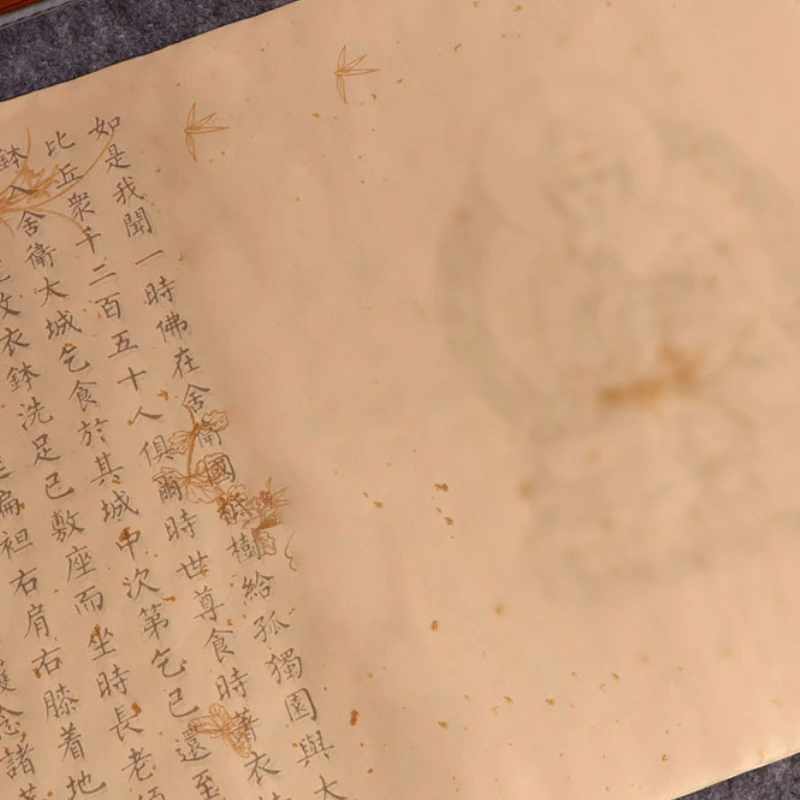 如是我聞一時佛在舍衛國祇樹給孤獨園與大
比丘衆千二百五十人俱爾時世尊食時著衣
鉢入舍衛大城乞食於其城中次第乞已還至
收衣鉢洗足已敷座而坐時長老
偏袒右肩右膝着地
護念諸菩